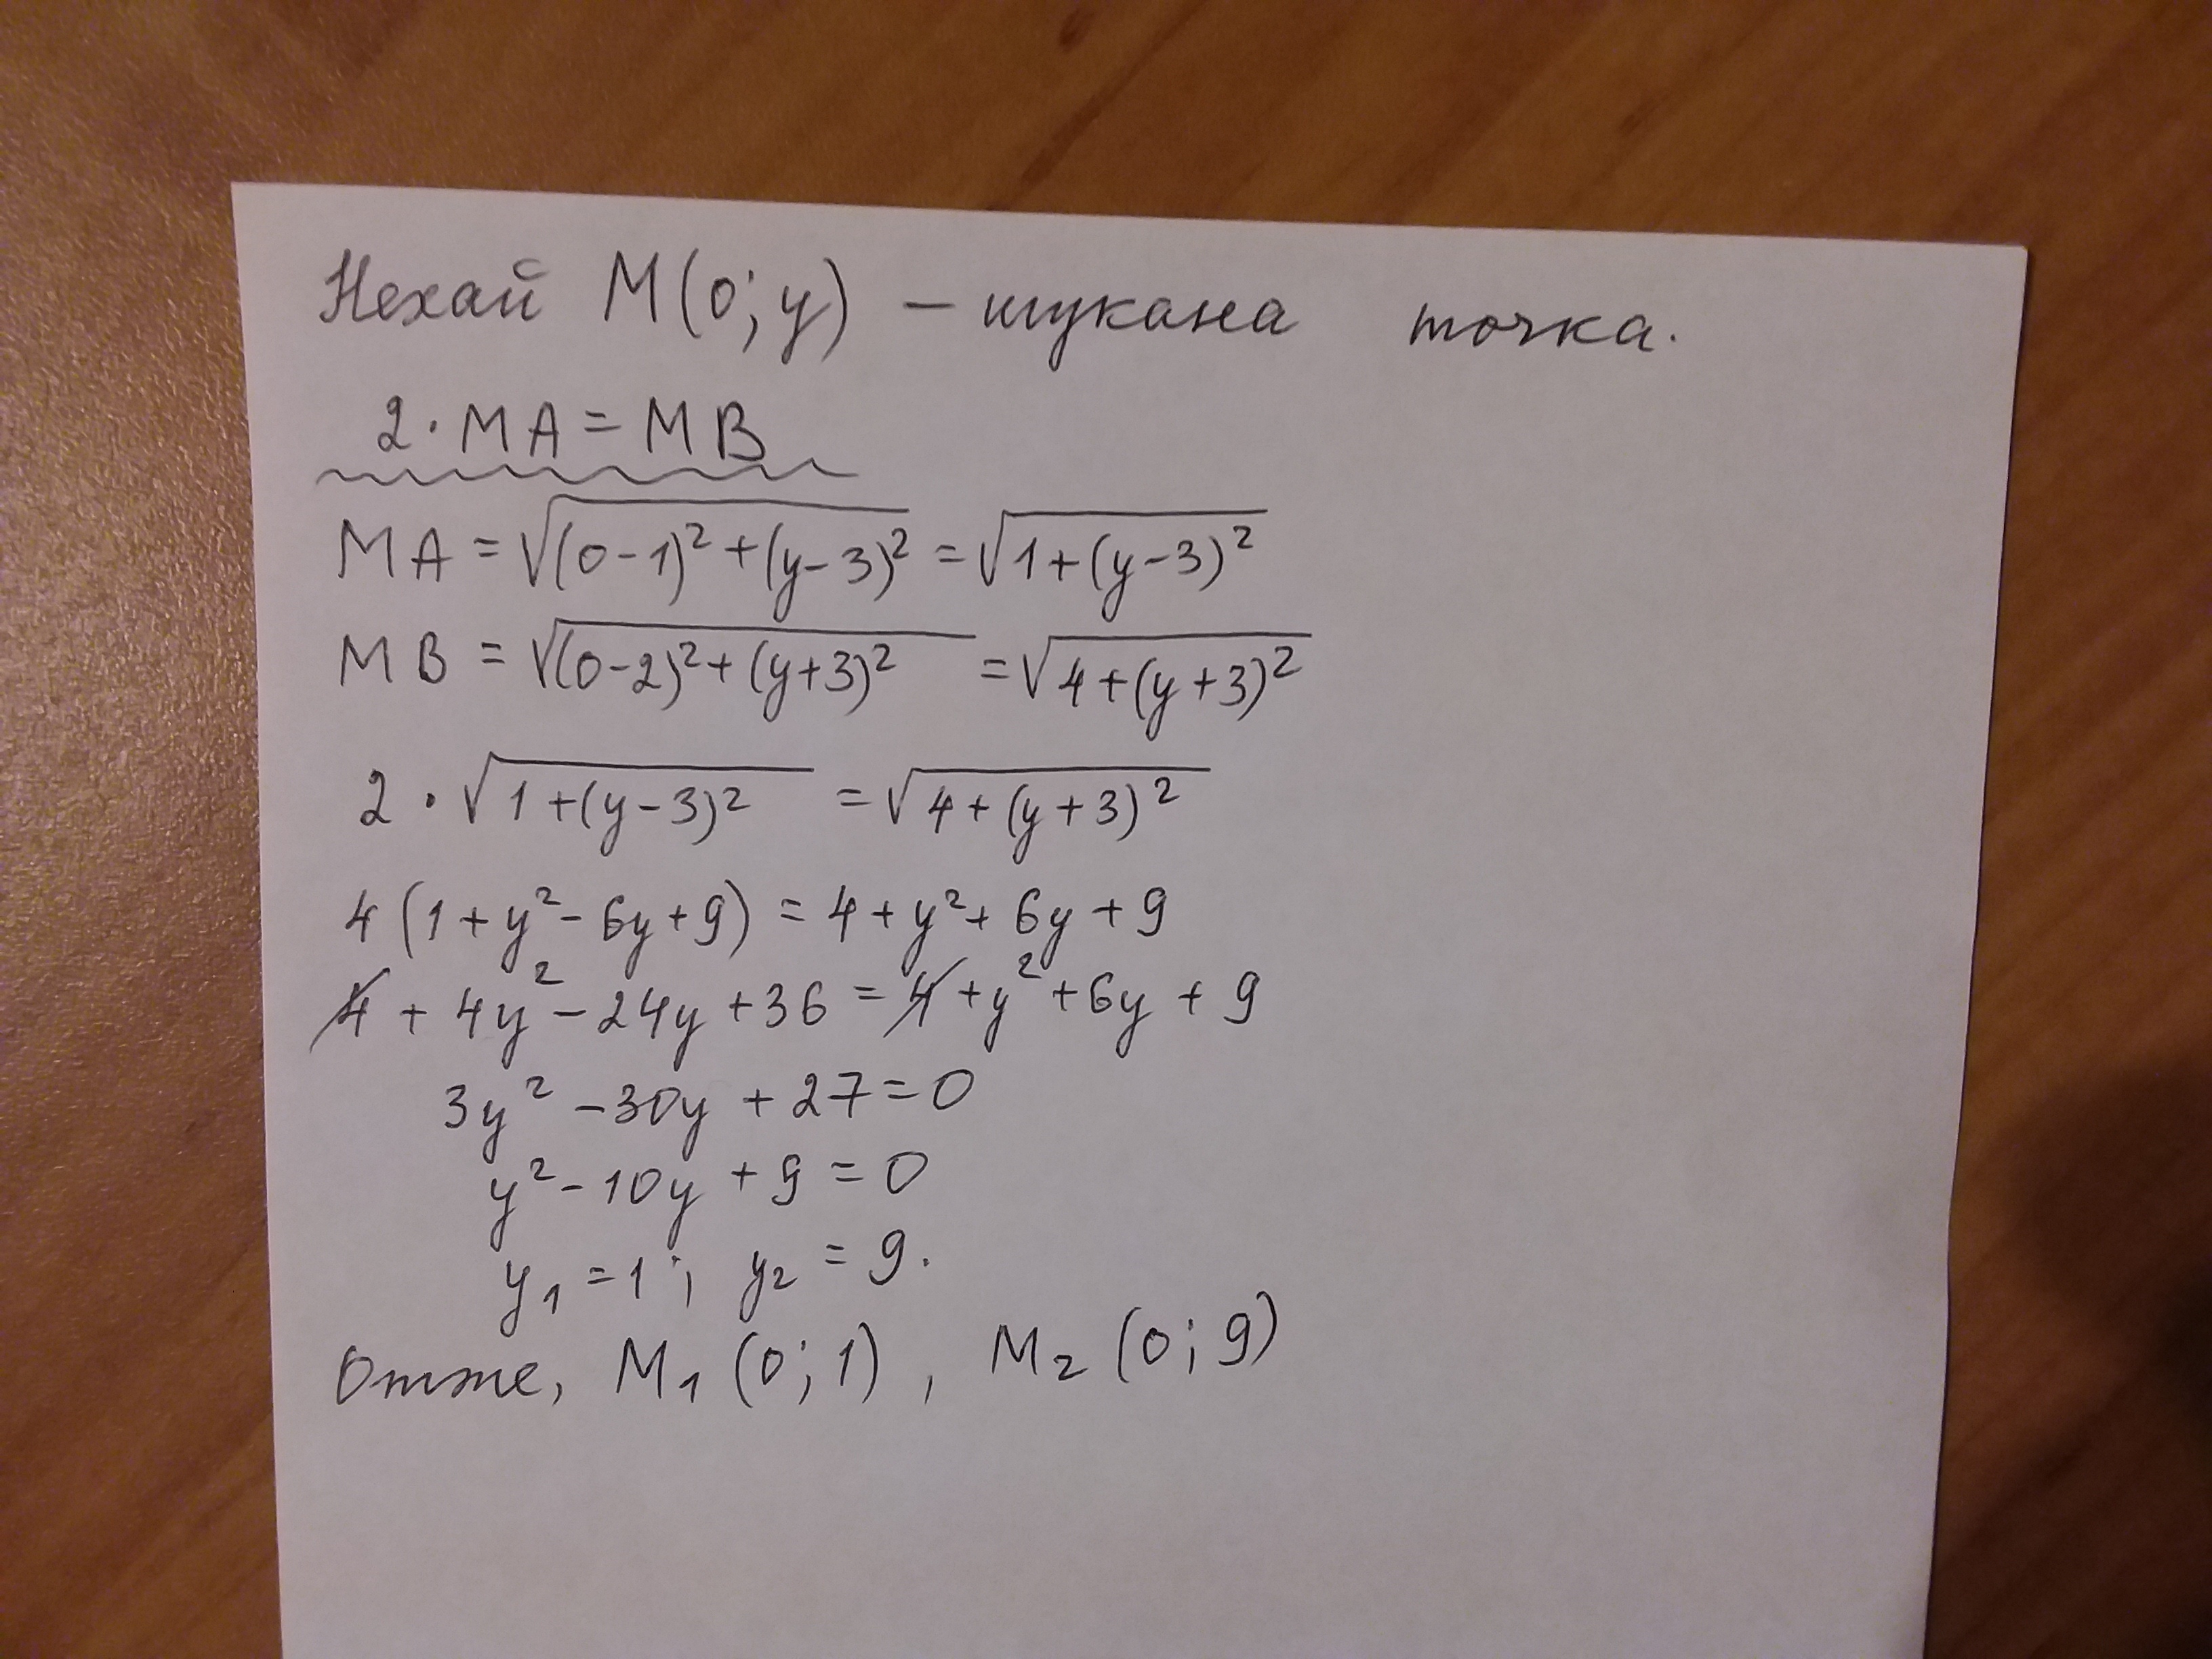 Нехай M(0; y) – шукана точка.
2 · MA = MB
MA = √((0-1)² + (y-3)²) = √(1+(y-3)²)
MB = √((0-2)² + (y+3)²) = √(4+(y+3)²)
2 · √(1+(y-3)²) = √(4+(y+3)²)
4(1+y²-6y+9) = 4+y²+6y+9
4 + 4y² - 24y + 36 = 4 + y² + 6y + 9
3y² - 30y + 27 = 0
y² - 10y + 9 = 0
y₁ = 1; y₂ = 9.
Отже, M₁ (0; 1), M₂ (0; 9)